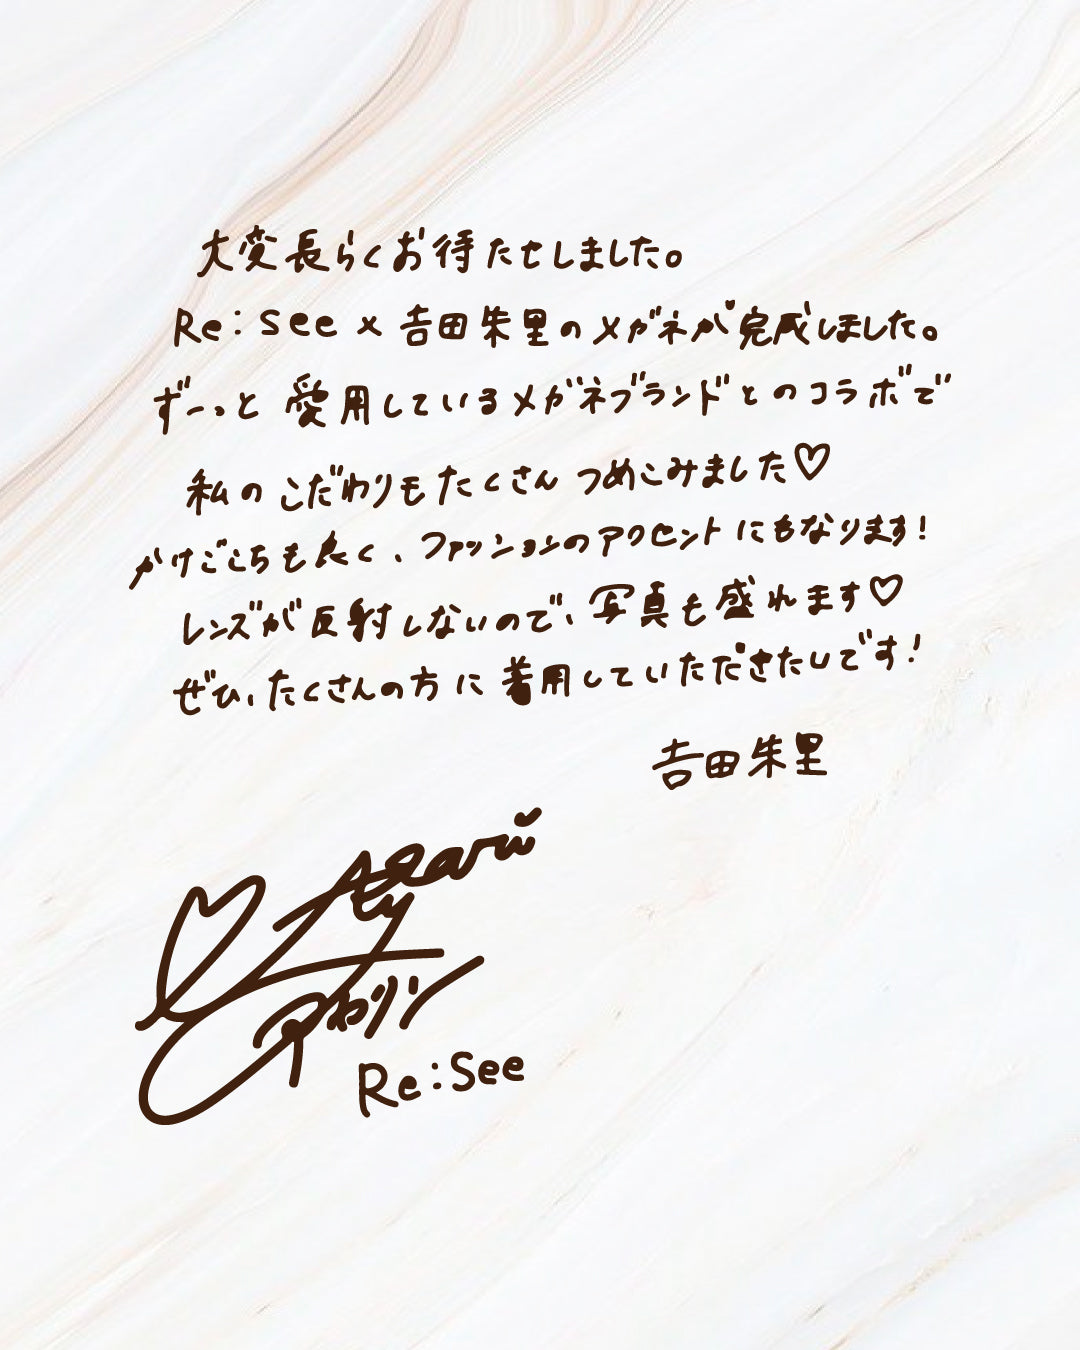 大変長らくお待たせしました。
Re:See×吉田朱里のメガネが完成しました。
ずーっと愛用しているメガネブランドとのコラボで
私のこだわりもたくさんつめこみました♡
かけごこちも良く、ファッションのアクセントにもなります!
レンズが反射しないので、写真も盛れます♡
ぜひ、たくさんの方に着用していただきたいです!
吉田朱里
アカリン
Re:See